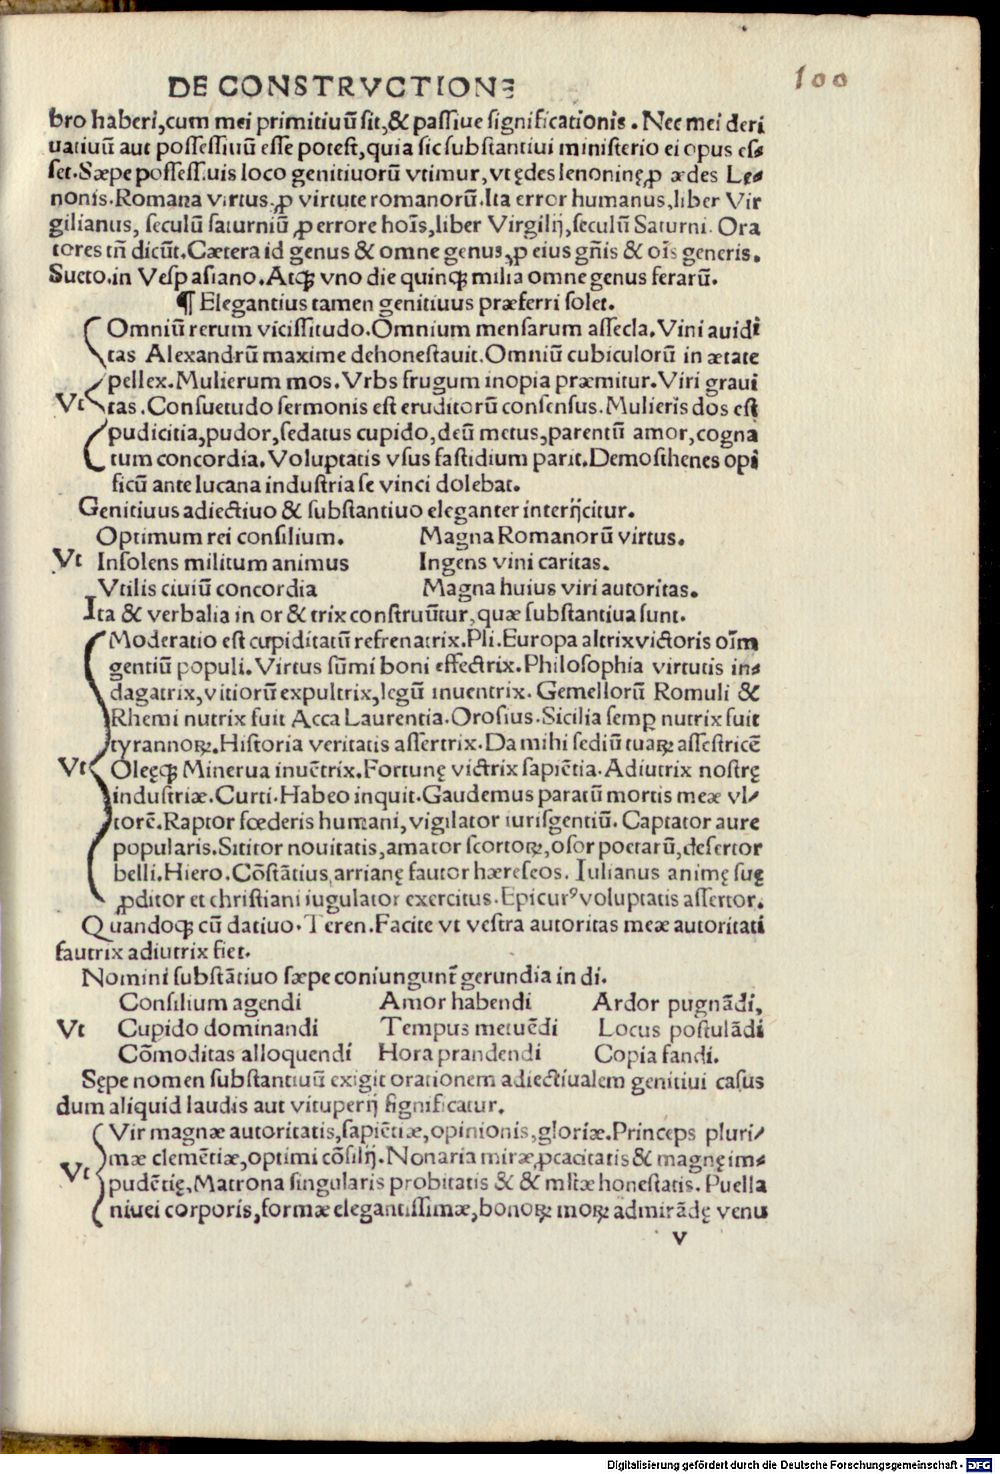 100
DE CONSTRVCTIONE
bro haberi,cum mei primitiuū sit,& passiue significationis . Nec mei deri
uatiuū aut possessiuū esse potest,quia sic substantiui ministerio ei opus es⸗
set.Sæpe possessiuis loco genitiuorū vtimur,vt ędes lenoninę,ꝓ ædes Le⸗
nonis.Romana virtus,ꝓ virtute romanorū.Ita error humanus,liber Vir
gilianus, seculū saturniū ,ꝓ errore hoīs,liber Virgilij,seculū Saturni. Ora
tores tñ dicūt.Cætera id genus & omne genus,ꝓ eius gñis & oīs generis.
Sueto.in Vespasiano.Atqꝫ vno die quinqꝫ milia omne genus ferarū.
¶ Elegantius tamen genitiuus præferri solet.
Omniū rerum vicissitudo.Omnium mensarum assecla.Vini auidi
tas Alexandrū maxime dehonestauit.Omniū cubiculorū in ætate
pellex.Mulierum mos.Vrbs frugum inopia præmitur.Viri graui
Vt tas.Consuetudo sermonis est eruditorū consensus.Mulieris dos est
pudicitia,pudor,sedatus cupido,deū metus,parentū amor,cogna
tum concordia.Voluptatis vsus fastidium parit.Demosthenes opi
ficū ante lucana industria se vinci dolebat.
Genitiuus adiectiuo & substantiuo eleganter interijcitur.
Optimum rei consilium. Magna Romanorū virtus.
Vt Insolens militum animus Ingens vini caritas.
Vtilis ciuiū concordia Magna huius viri autoritas.
Ita & verbalia in or & trix construūtur,quæ substantiua sunt.
Moderatio est cupiditatū refrenatrix.Pli.Europa altrix victoris oīm
gentiū populi.Virtus sūmi boni effectrix.Philosophia virtutis in⸗
dagatrix,vitiorū expultrix,legū inuentrix.Gemellorū Romuli &
Rhemi nutrix fuit Acca Laurentia.Orosius.Sicilia semꝑ nutrix fuit
tyrannoꝝ.Historia veritatis assertrix.Da mihi sediū tuaꝝ assestricē
Vt Oleęqꝫ Minerua inuētrix.Fortunę victrix sapiētia.Adiutrix nostrę
industriæ.Curti.Habeo inquit.Gaudemus paratū mortis meæ vl⸗
torē.Raptor fœderis humani,vigilator iurisgentiū.Captator auræ
popularis.Sititor nouitatis,amator scortoꝝ,osor poetarū,desertor
belli.Hiero.Cōstātius,arrianę fautor hæreseos. Iulianus animę suę
ꝓditor et christiani iugulator exercitus.Epicurꝰ voluptatis assertor.
Quandoqꝫ cū datiuo.Teren.Facite vt vestra autoritas meæ autoritati
fautrix adiutrix fiet.
Nomini substātiuo sæpe coniungunt̃ gerundia in di.
Consilium agendi Amor habendi Ardor pugnādi,
Vt Cupido dominandi Tempus metuēdi Locus postulādi
Cōmoditas alloquendi Hora prandendi Copia fandi.
Sępe nomen substantiuū exigit orationem adiectiualem genitiui casus
dum aliquid laudis aut vituperij significatur.
Vir magnæ autoritatis,sapiētiæ,opinionis,gloriæ.Princeps pluri⸗
mæ clemētiæ,optimi cōsilij.Nonaria miræ ꝓcacitatis & magnę im⸗
Vt pudētię,Matrona singularis probitatis & & mltæ honestatis. Puella
niuei corporis,formæ elegantissimæ,bonoꝝ moꝝ admirādę venu
v
Digitalisierung gefördert durch die Deutsche Forschungsgemeinschaft - DFG